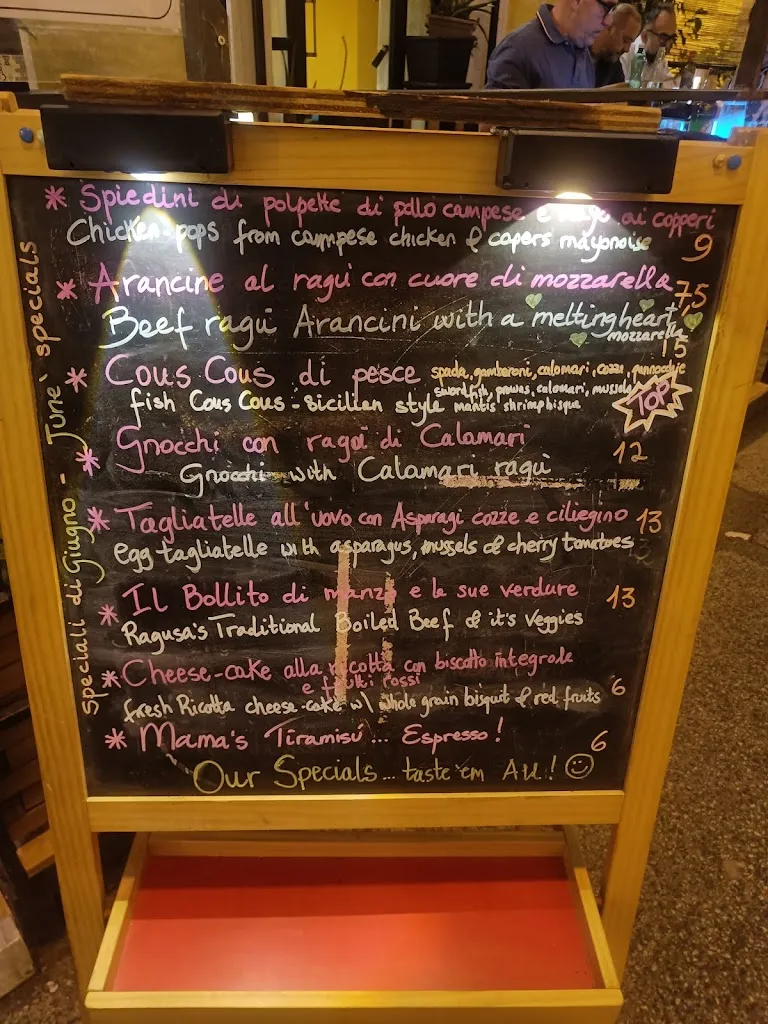 * Spiedini di polpette di pollo campese e mayo ai capperi
Chicken-pops from campese chicken & capers mayonoise 9
* Arancine al ragù con cuore di mozzarella 7,5
Beef ragù Arancini with a melting heart
mozzarella
15
* Cous Cous di pesce spada, gamberoni, calamari, cozze, pannocchie
swordfish, prawns, calamari, mussels
fish Cous Cous - Sicilian style mantis shrimp bisque TOP
* Gnocchi con ragù di Calamari 12
Gnocchi with Calamari ragù
* Tagliatelle all'uovo con Asparagi cozze e ciliegino 13
egg tagliatelle with asparagus, mussels & cherry tomatoes
* Il Bollito di manzo e le sue verdure 13
Ragusa's Traditional Boiled Beef & it's Veggies
* Cheese-cake alla ricotta con biscotto integrale
e frutti rossi
fresh Ricotta cheese-cake w\ whole grain bisquit & red fruits 6
* Mama's Tiramisú... Espresso! 6
Our Specials... taste 'em All!
Speciali di Giugno - June' specials